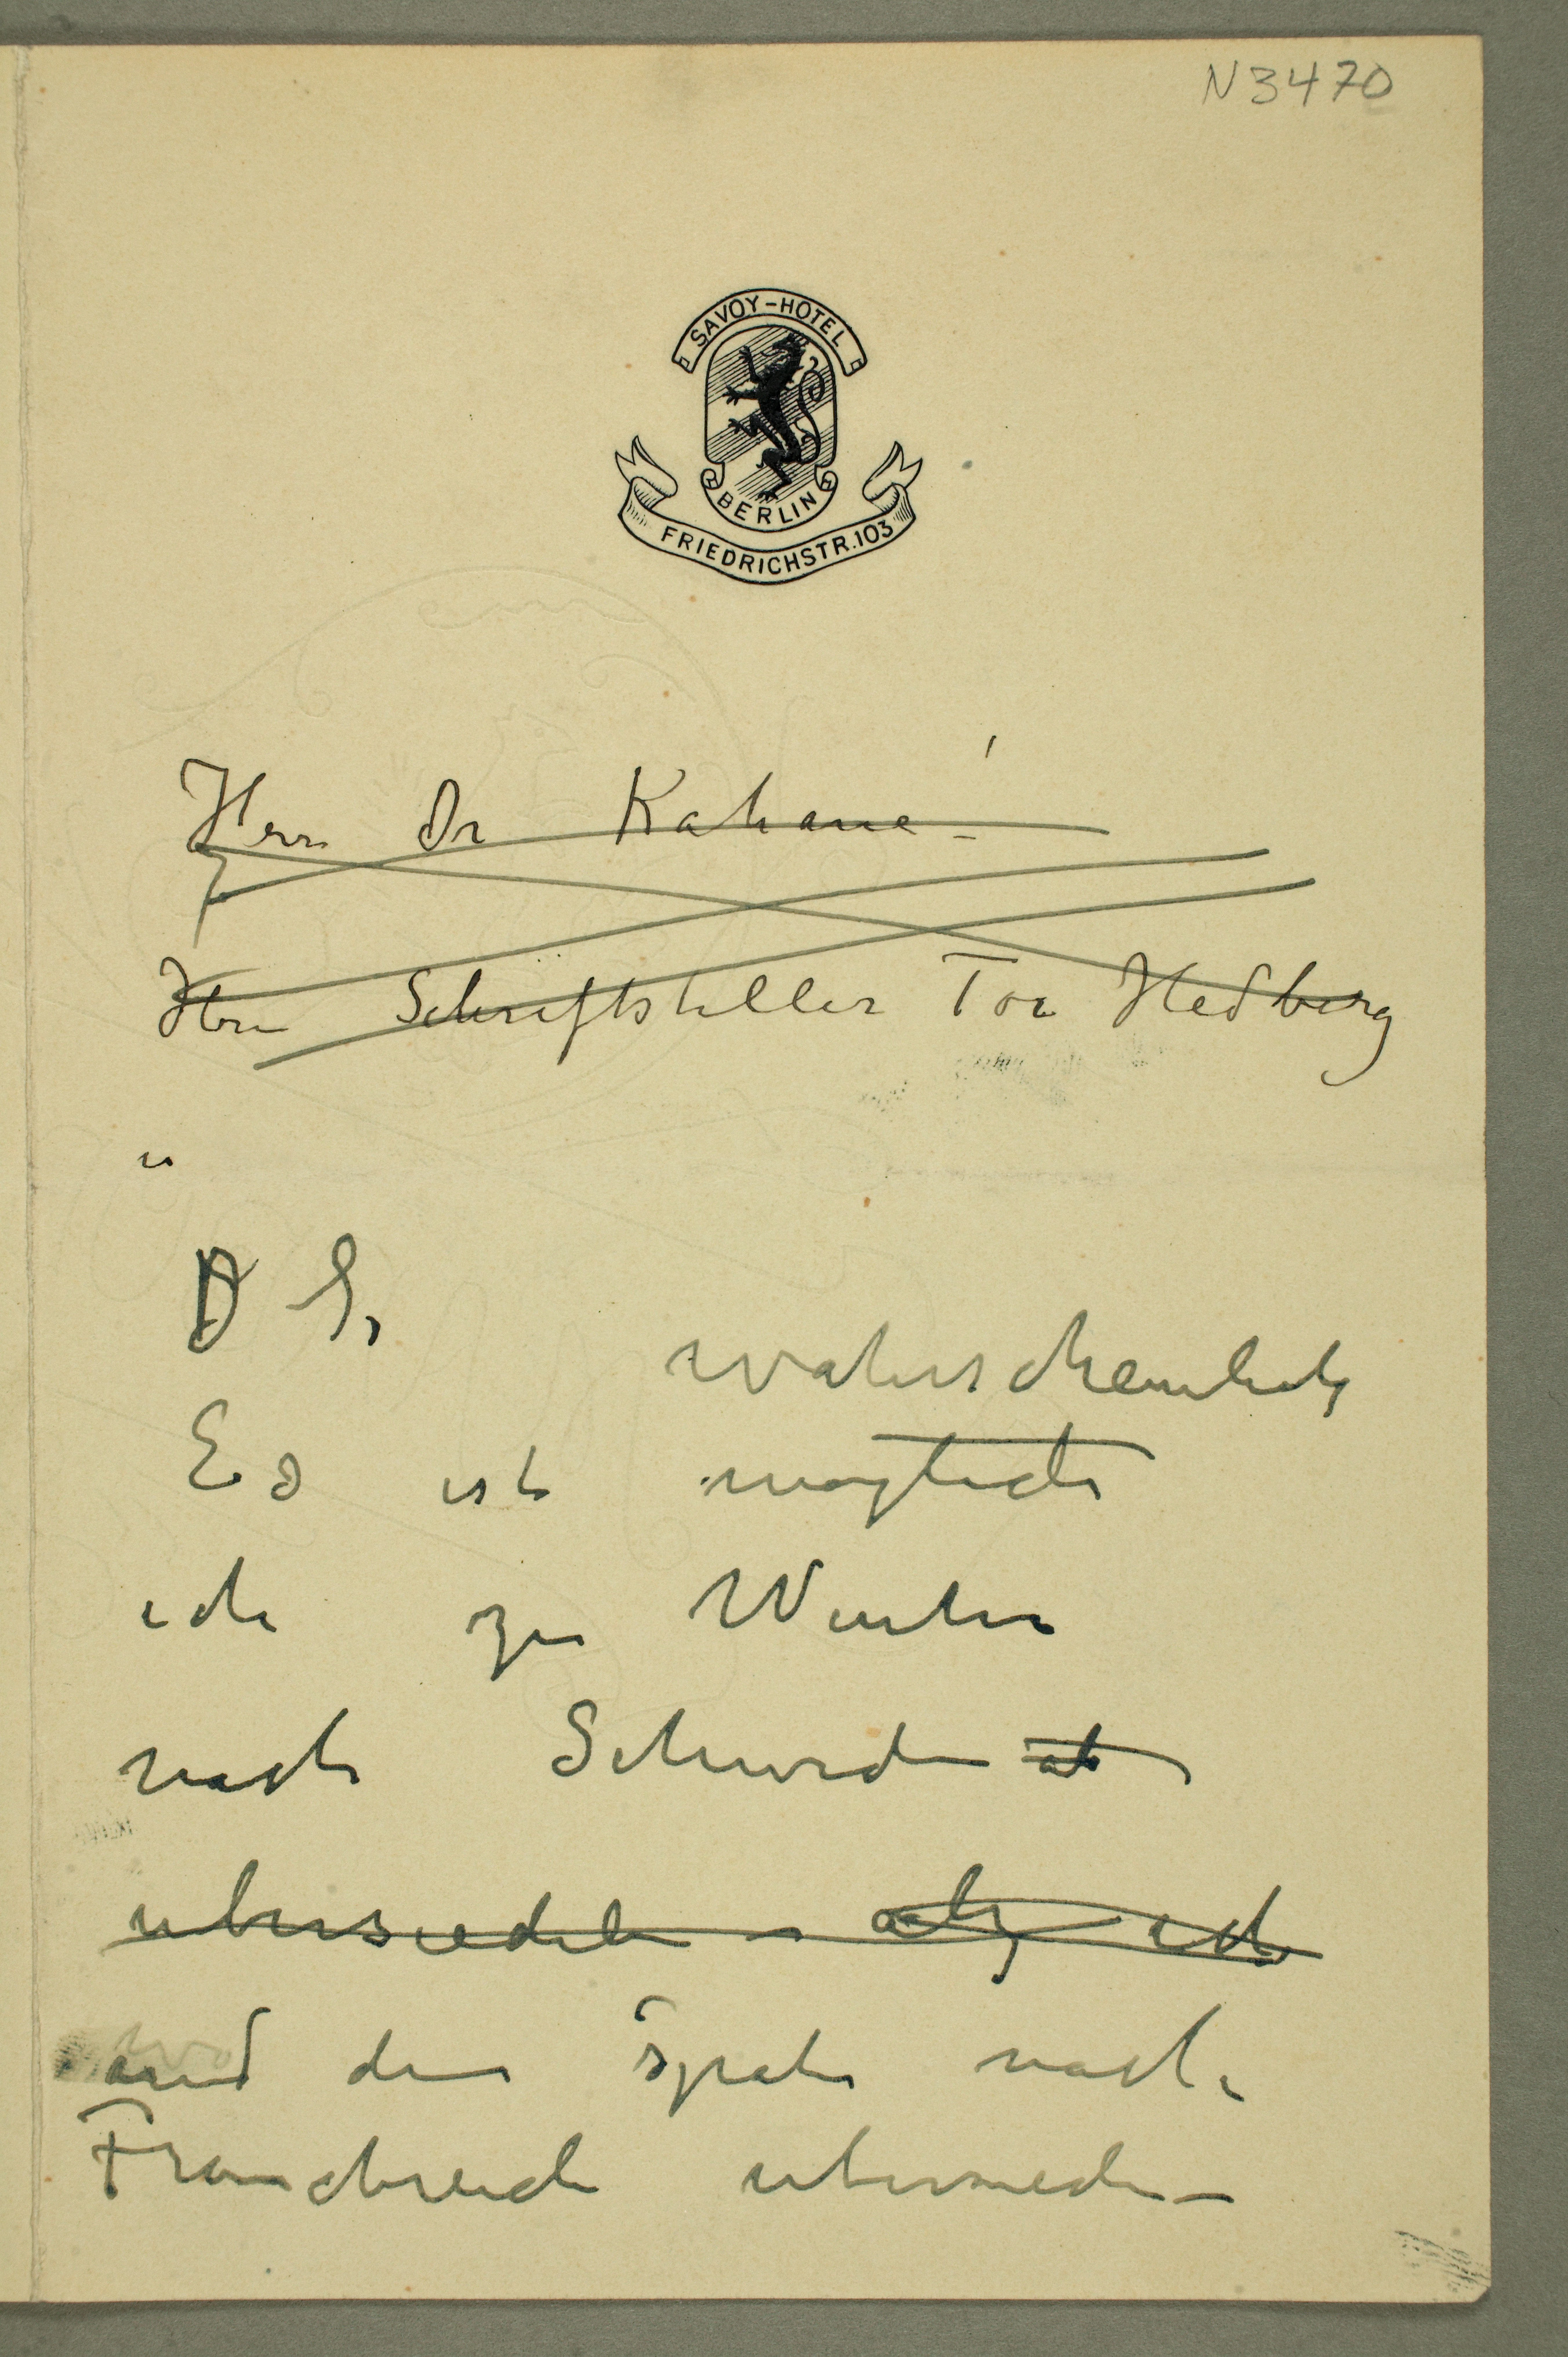 N3470
SAVOY-HOTEL
BERLIN
FRIEDRICHSTR.103
Herrn Dr Kahane
Herrn Schriftsteller Tor Hedberg
D S,
wahrscheinlich
Es ist moglich
ich zu Winter
nach Schweden
ubersiedeln ich
und den spater nach
Franckreich